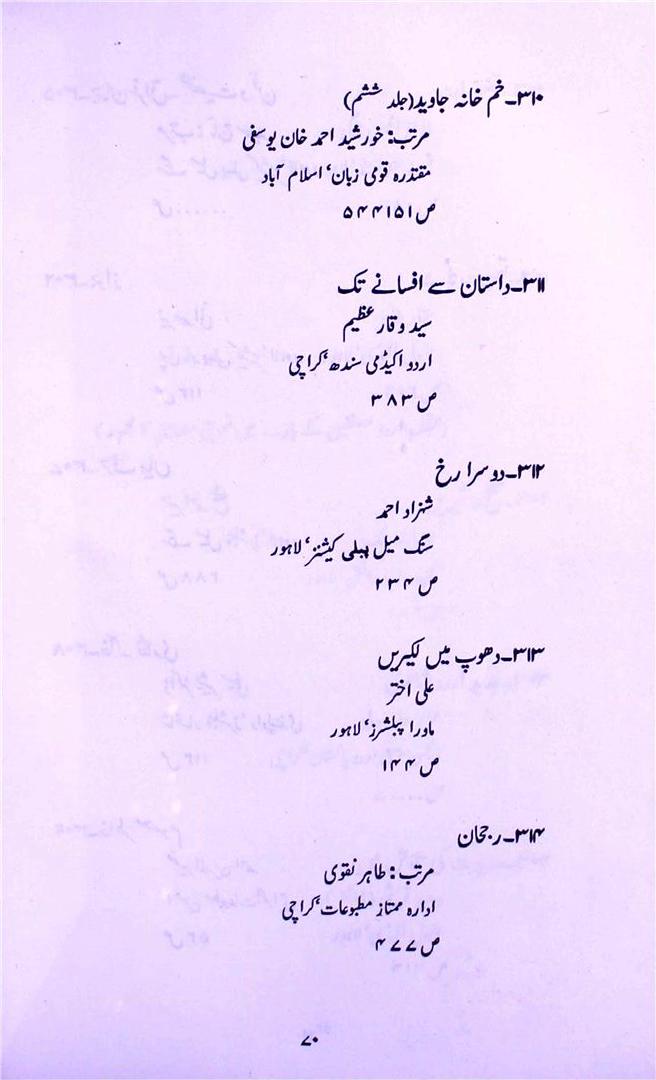 ۳۱۰۔خم خانہ جاوید(جلد ششم)
مرتب: خورشید احمد خان یوسفی
مقتدرہ قومی زبان‘ اسلام آباد
ص ۵۴۴۱۵۱
۳۱۱۔داستان سے افسانے تک
سید وقار عظیم
اردو اکیڈمی سندھ‘کراچی
ص ۳۸۳
۳۱۲۔دوسرا رخ
شہزاد احمد
سنگ میل پبلی کیشنز‘ لاہور
ص ۲۳۴
۳۱۳۔دھوپ میں لکیریں
علی اختر
ماورا پبلشرز‘ لاہور
ص ۱۴۴
۳۱۴۔رجحان
مرتب: طاہر نقوی
ادارہ ممتاز مطبوعات‘کراچی
ص ۴۷۷
۷۰